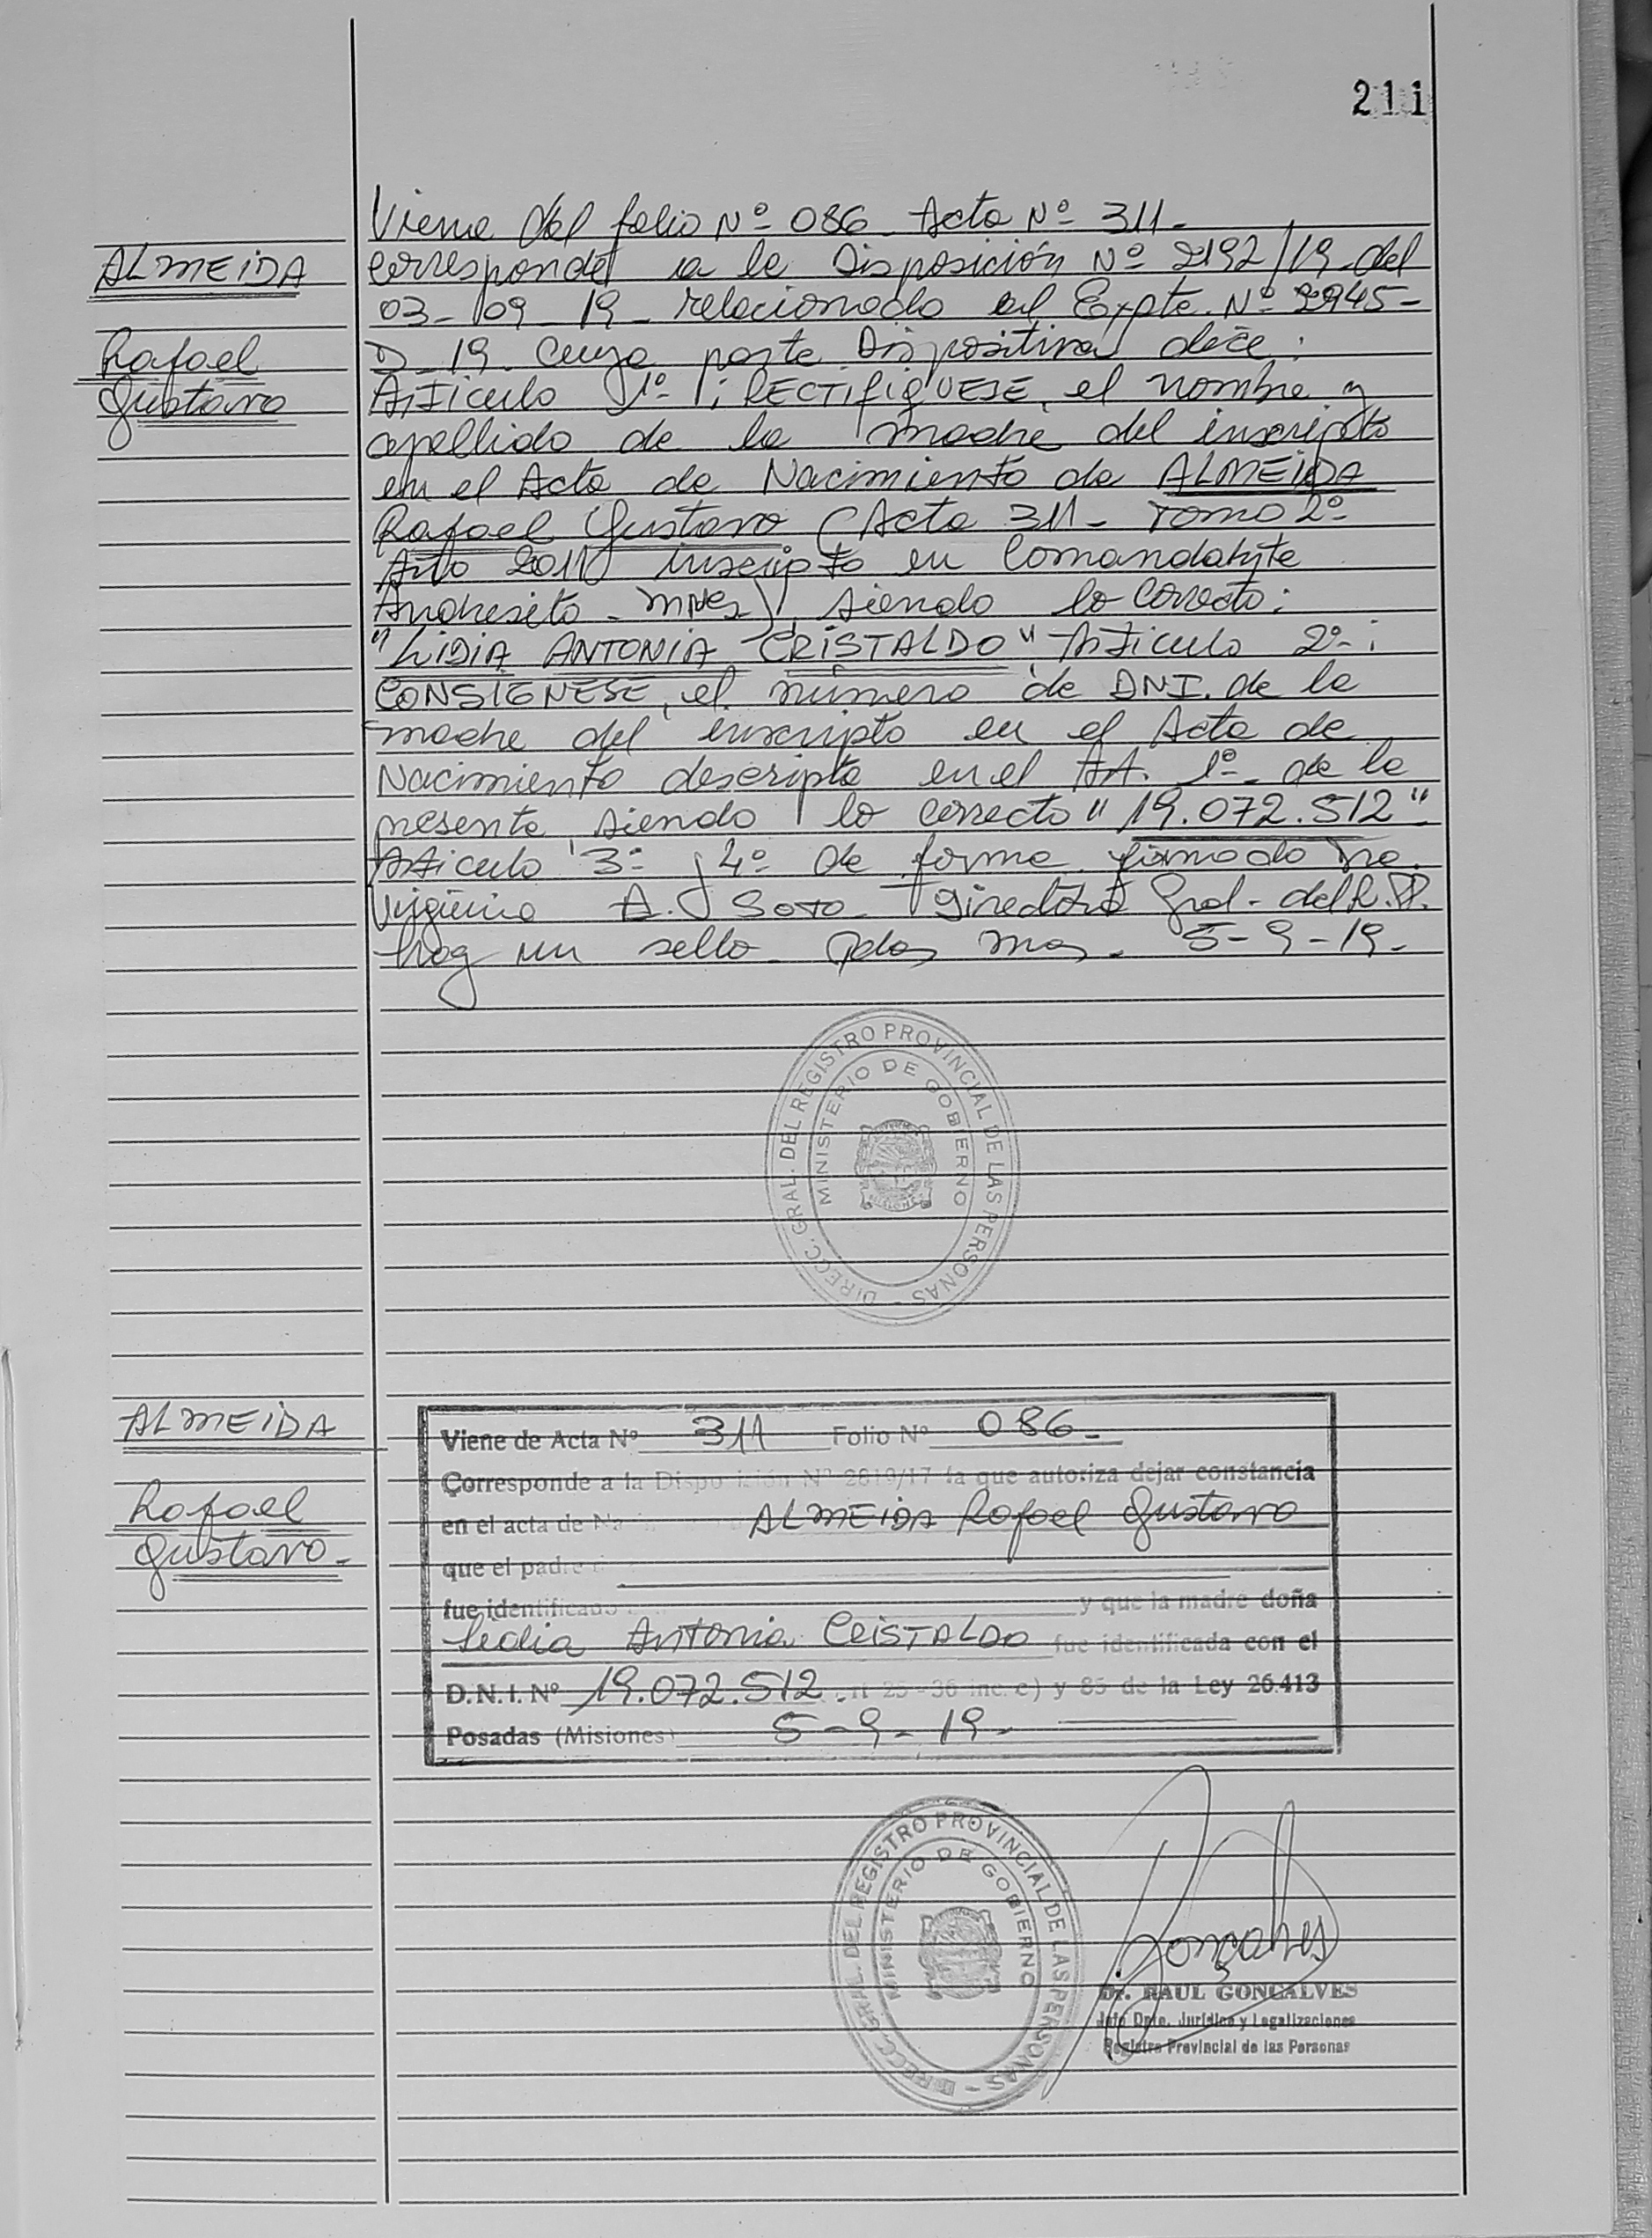 211
ALMEIDA
Rafael
Gustavo
Viene del folio Nº 086 Acta Nº 311-
corresponde a la Disposición Nº 2192/19 del
03-09-19- relacionado al Expte. Nº 2945-
D-19. Cuya parte Dispositiva dice:
Artículo 1º: RECTIFIQUESE, el nombre y
apellido de la madre del inscripto
en el Acta de Nacimiento de ALMEIDA
Rafael Gustavo (Acta 311- Tomo 2º
Año 2011 inscripto en Comandante
Andresito - Mnes), siendo lo correcto:
"LIDIA ANTONIA CRISTALDO" Artículo 2º:
CONSIGNESE, el número de DNI. de la
madre del inscripto en el Acta de
Nacimiento descripta en el Art. 1º de la
presente, siendo lo correcto "19.072.512".
Artículo 3º y 4º de forma firmado Dra.
Virginia A. Soto Directora Gral. del R.P.P.
hay un sello. Pdas Mnes. 5-9-19.
DIRECC. GRAL. DEL REGISTRO PROVINCIAL DE LAS PERSONAS -
MINISTERIO DE GOBIERNO
ALMEIDA
Rafael
Gustavo-
Viene de Acta Nº 311 Folio Nº 086-
Corresponde a la Disposición Nº 2819/17 la que autoriza dejar constancia
en el acta de ALMEIDA Rafael Gustavo
que el padre
fue identificado y que la madre doña
Lidia Antonia CRISTALDO fue identificada con el
D.N.I. Nº 19.072.512. 25 - 36 inc. c) y 85 de la Ley 26.413
Posadas (Misiones) 5-9-19-
DIRECC. GRAL. DEL REGISTRO PROVINCIAL DE LAS PERSONAS -
MINISTERIO DE GOBIERNO
Gonçalves
Dr. RAUL GONÇALVES
Jefe Dpto. Jurídico y Legalizaciones
Registro Provincial de las Personas